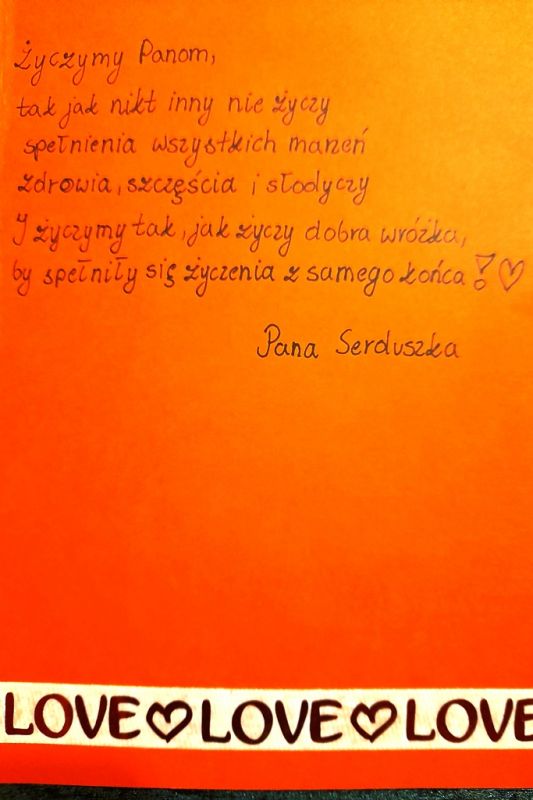 Życzymy Panom,
tak jak nikt inny nie życzy
spełnienia wszystkich marzeń
zdrowia, szczęścia i słodyczy
I życzymy tak, jak życzy dobra wróżka,
by spełniły się życzenia z samego końca! ♡
Pana Serduszka
LOVE ♡ LOVE ♡ LOVE